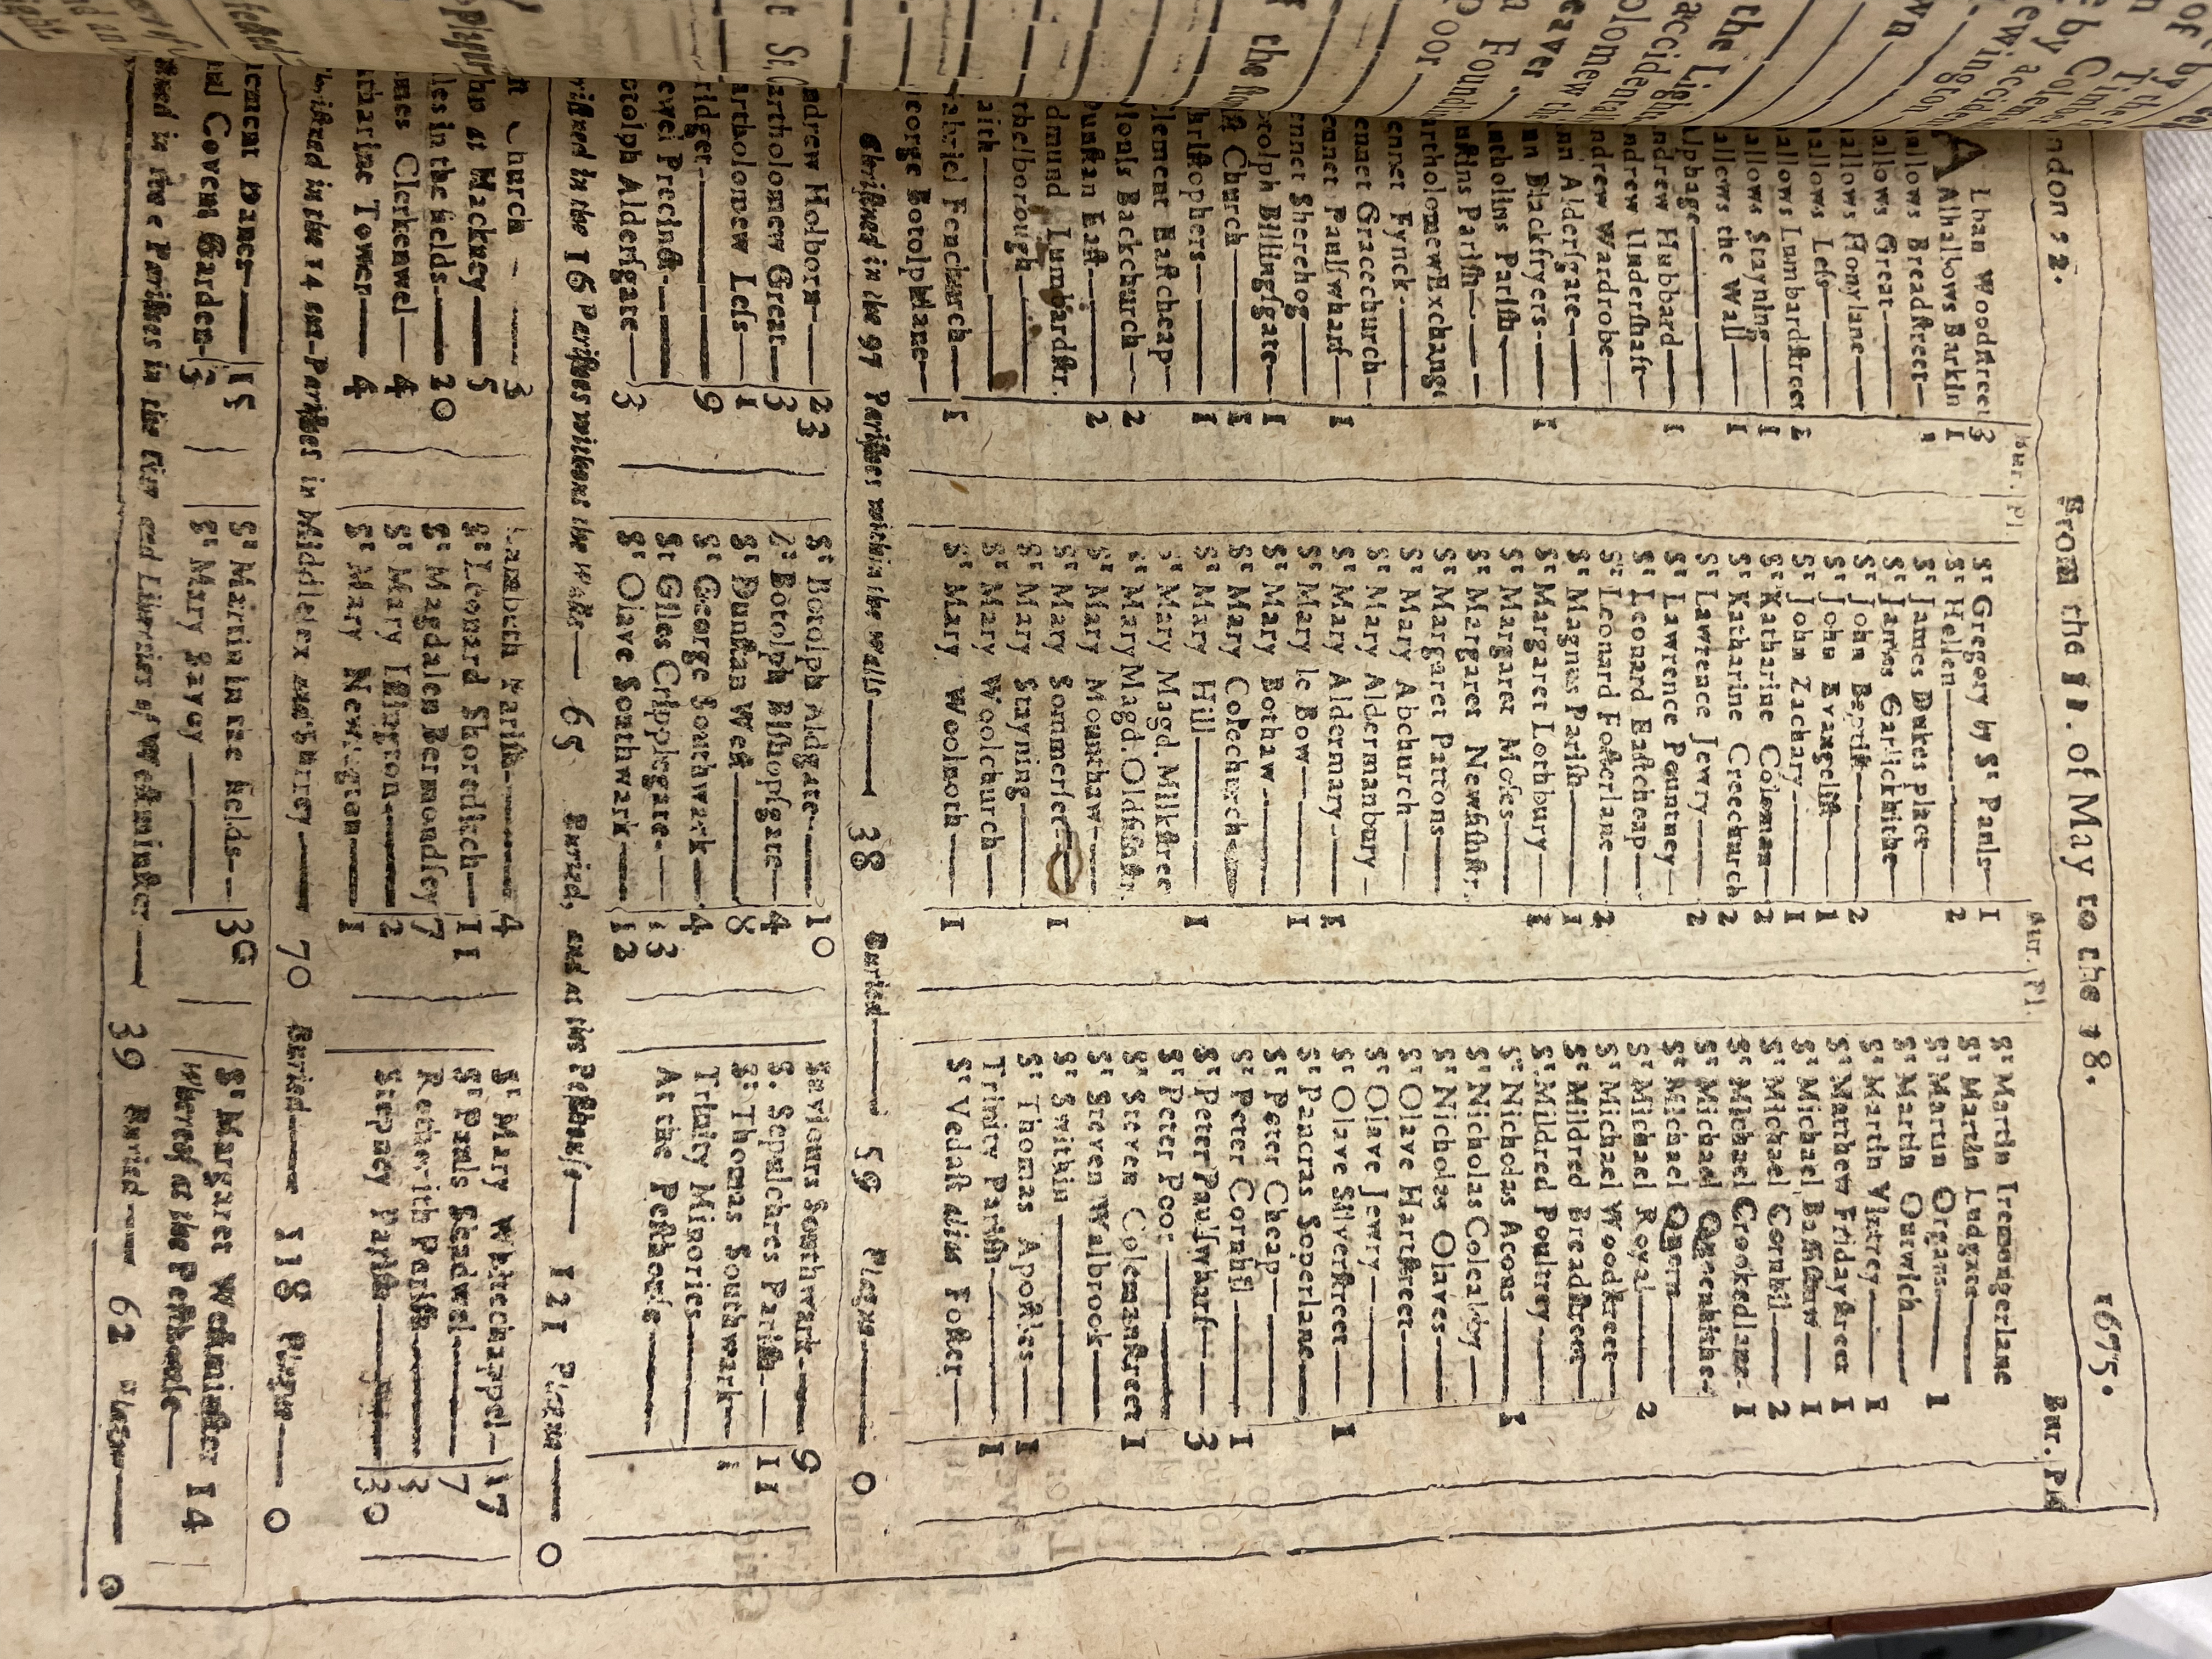 ndon 22. From the 11. of May to the 18. 1675.
Bur. Pl.
Alban Woodſtreet 3
Alhallows Barkin 1
allows Breadſtreet— 1
allows Great—
allows Honylane—
allows Leſs—
allows Lumbardſtreet 2
allows Stayning— 1
allows the Wall— 1
Alphage—
ndrew Hubbard— 1
ndrew Underſhaft—
ndrew Wardrobe—
nn Alderſgate—
nn Blackfryers— 1
ntholins Pariſh—
uſtins Pariſh—
artholomew Exchange
ennet Fynck—
ennet Gracechurch—
ennet Paulſwharf— 1
ennet Sherehog—
otolph Billingſgate— 1
ſt Church— 1
hriſtophers— 1
lement Eaſtcheap—
ionis Backchurch— 2
unſtan Eaſt— 2
dmund Lumbardſtr.
thelborough—
aith—
abriel Fenchurch— 1
eorge Botolphlane—
Bur. Pl.
Sᵗ Gregory by Sᵗ Pauls— 1
Sᵗ Hellen— 2
Sᵗ James Dukes place—
Sᵗ James Garlickhithe—
Sᵗ John Baptiſt— 2
Sᵗ John Evangeliſt— 1
Sᵗ John Zachary— 1
Sᵗ Katharine Coleman— 2
Sᵗ Katharine Creechurch 2
Sᵗ Lawrence Jewry— 2
Sᵗ Lawrence Pountney—
Sᵗ Leonard Eaſtcheap—
Sᵗ Leonard Foſterlane— 2
Sᵗ Magnus Pariſh— 1
Sᵗ Margaret Lothbury— 1
Sᵗ Margaret Moſes—
Sᵗ Margaret Newfiſhſtr.
Sᵗ Margaret Pattons—
Sᵗ Mary Abchurch—
Sᵗ Mary Aldermanbury—
Sᵗ Mary Aldermary— 1
Sᵗ Mary le Bow— 1
Sᵗ Mary Bothaw—
Sᵗ Mary Colechurch—
Sᵗ Mary Hill— 1
Sᵗ Mary Magd. Milkſtree
Sᵗ Mary Magd. Oldfiſhſtr.
Sᵗ Mary Mounthaw—
Sᵗ Mary Sommerſet— 1
Sᵗ Mary Stayning—
Sᵗ Mary Woolchurch—
Sᵗ Mary Woolnoth— 1
Bur. Pl
Sᵗ Martin Iremongerlane
Sᵗ Martin Ludgate—
Sᵗ Martin Organs— 1
Sᵗ Martin Outwich—
Sᵗ Martin Vintrey— 1
Sᵗ Matthew Fridayſtreet 1
Sᵗ Michael Baſſiſhaw— 1
Sᵗ Michael Cornhil— 2
Sᵗ Michael Crookedlane— 1
Sᵗ Michael Queenhithe—
Sᵗ Michael Quern—
Sᵗ Michael Royal— 2
Sᵗ Michael Woodſtreet—
Sᵗ Mildred Breadſtreet—
Sᵗ Mildred Poultrey—
Sᵗ Nicholas Acons— 1
Sᵗ Nicholas Coleabby—
Sᵗ Nicholas Olaves—
Sᵗ Olave Hartſtreet—
Sᵗ Olave Jewry—
Sᵗ Olave Silverſtreet— 1
Sᵗ Pancras Soperlane—
Sᵗ Peter Cheap—
Sᵗ Peter Cornhil— 1
Sᵗ Peter Paulſwharf— 3
Sᵗ Peter Poor—
Sᵗ Steven Colemanſtreet 1
Sᵗ Steven Walbrook—
Sᵗ Swithin—
Sᵗ Thomas Apoſtles— 1
Trinity Pariſh— 1
Sᵗ Vedaſt alias Foſter—
Chriſtned in the 97 Pariſhes within the walls— 38 Buried— 59 Plague— 0
ndrew Holborn— 23
artholomew Great— 3
artholomew Leſs— 1
ridget— 9
ewel Precinct—
otolph Alderſgate— 3
Sᵗ Botolph Aldgate— 10
Sᵗ Botolph Biſhopſgate— 4
Sᵗ Dunſtan Weſt— 8
Sᵗ George Southwark— 4
Sᵗ Giles Cripplegate— 13
Sᵗ Olave Southwark— 12
Saviours Southwark— 9
S. Sepulchres Pariſh— 11
Sᵗ Thomas Southwark— 1
Trinity Minories—
At the Peſthouſe—
riſtned in the 16 Pariſhes without the Walls— 65 Buried, and at the Peſthouſe— 121 Plague— 0
Church— 3
hn at Hackney— 5
les in the fields— 20
mes Clerkenwel— 4
tharine Tower— 4
Lambeth Pariſh— 4
Sᵗ Leonard Shoreditch— 11
Sᵗ Magdalen Bermondſey 7
Sᵗ Mary Iſlington— 2
Sᵗ Mary Newington— 1
Sᵗ Mary Whitechappel— 17
Sᵗ Pauls Shadwel— 7
Rotherith Pariſh— 3
Stepney Pariſh— 30
hriſtned in the 14 out-Pariſhes in Middleſex and Surrey— 70 Buried— 118 Plague— 0
lement Danes— 15
aul Covent Garden— 3
Sᵗ Martin in the fields— 30
Sᵗ Mary Savoy—
Sᵗ Margaret Weſtminſter 14
Whereof at the Peſthouſe—
ſtned in the 5 Pariſhes in the City and Liberties of Weſtminſter— 39 Buried— 62 Plague— 0